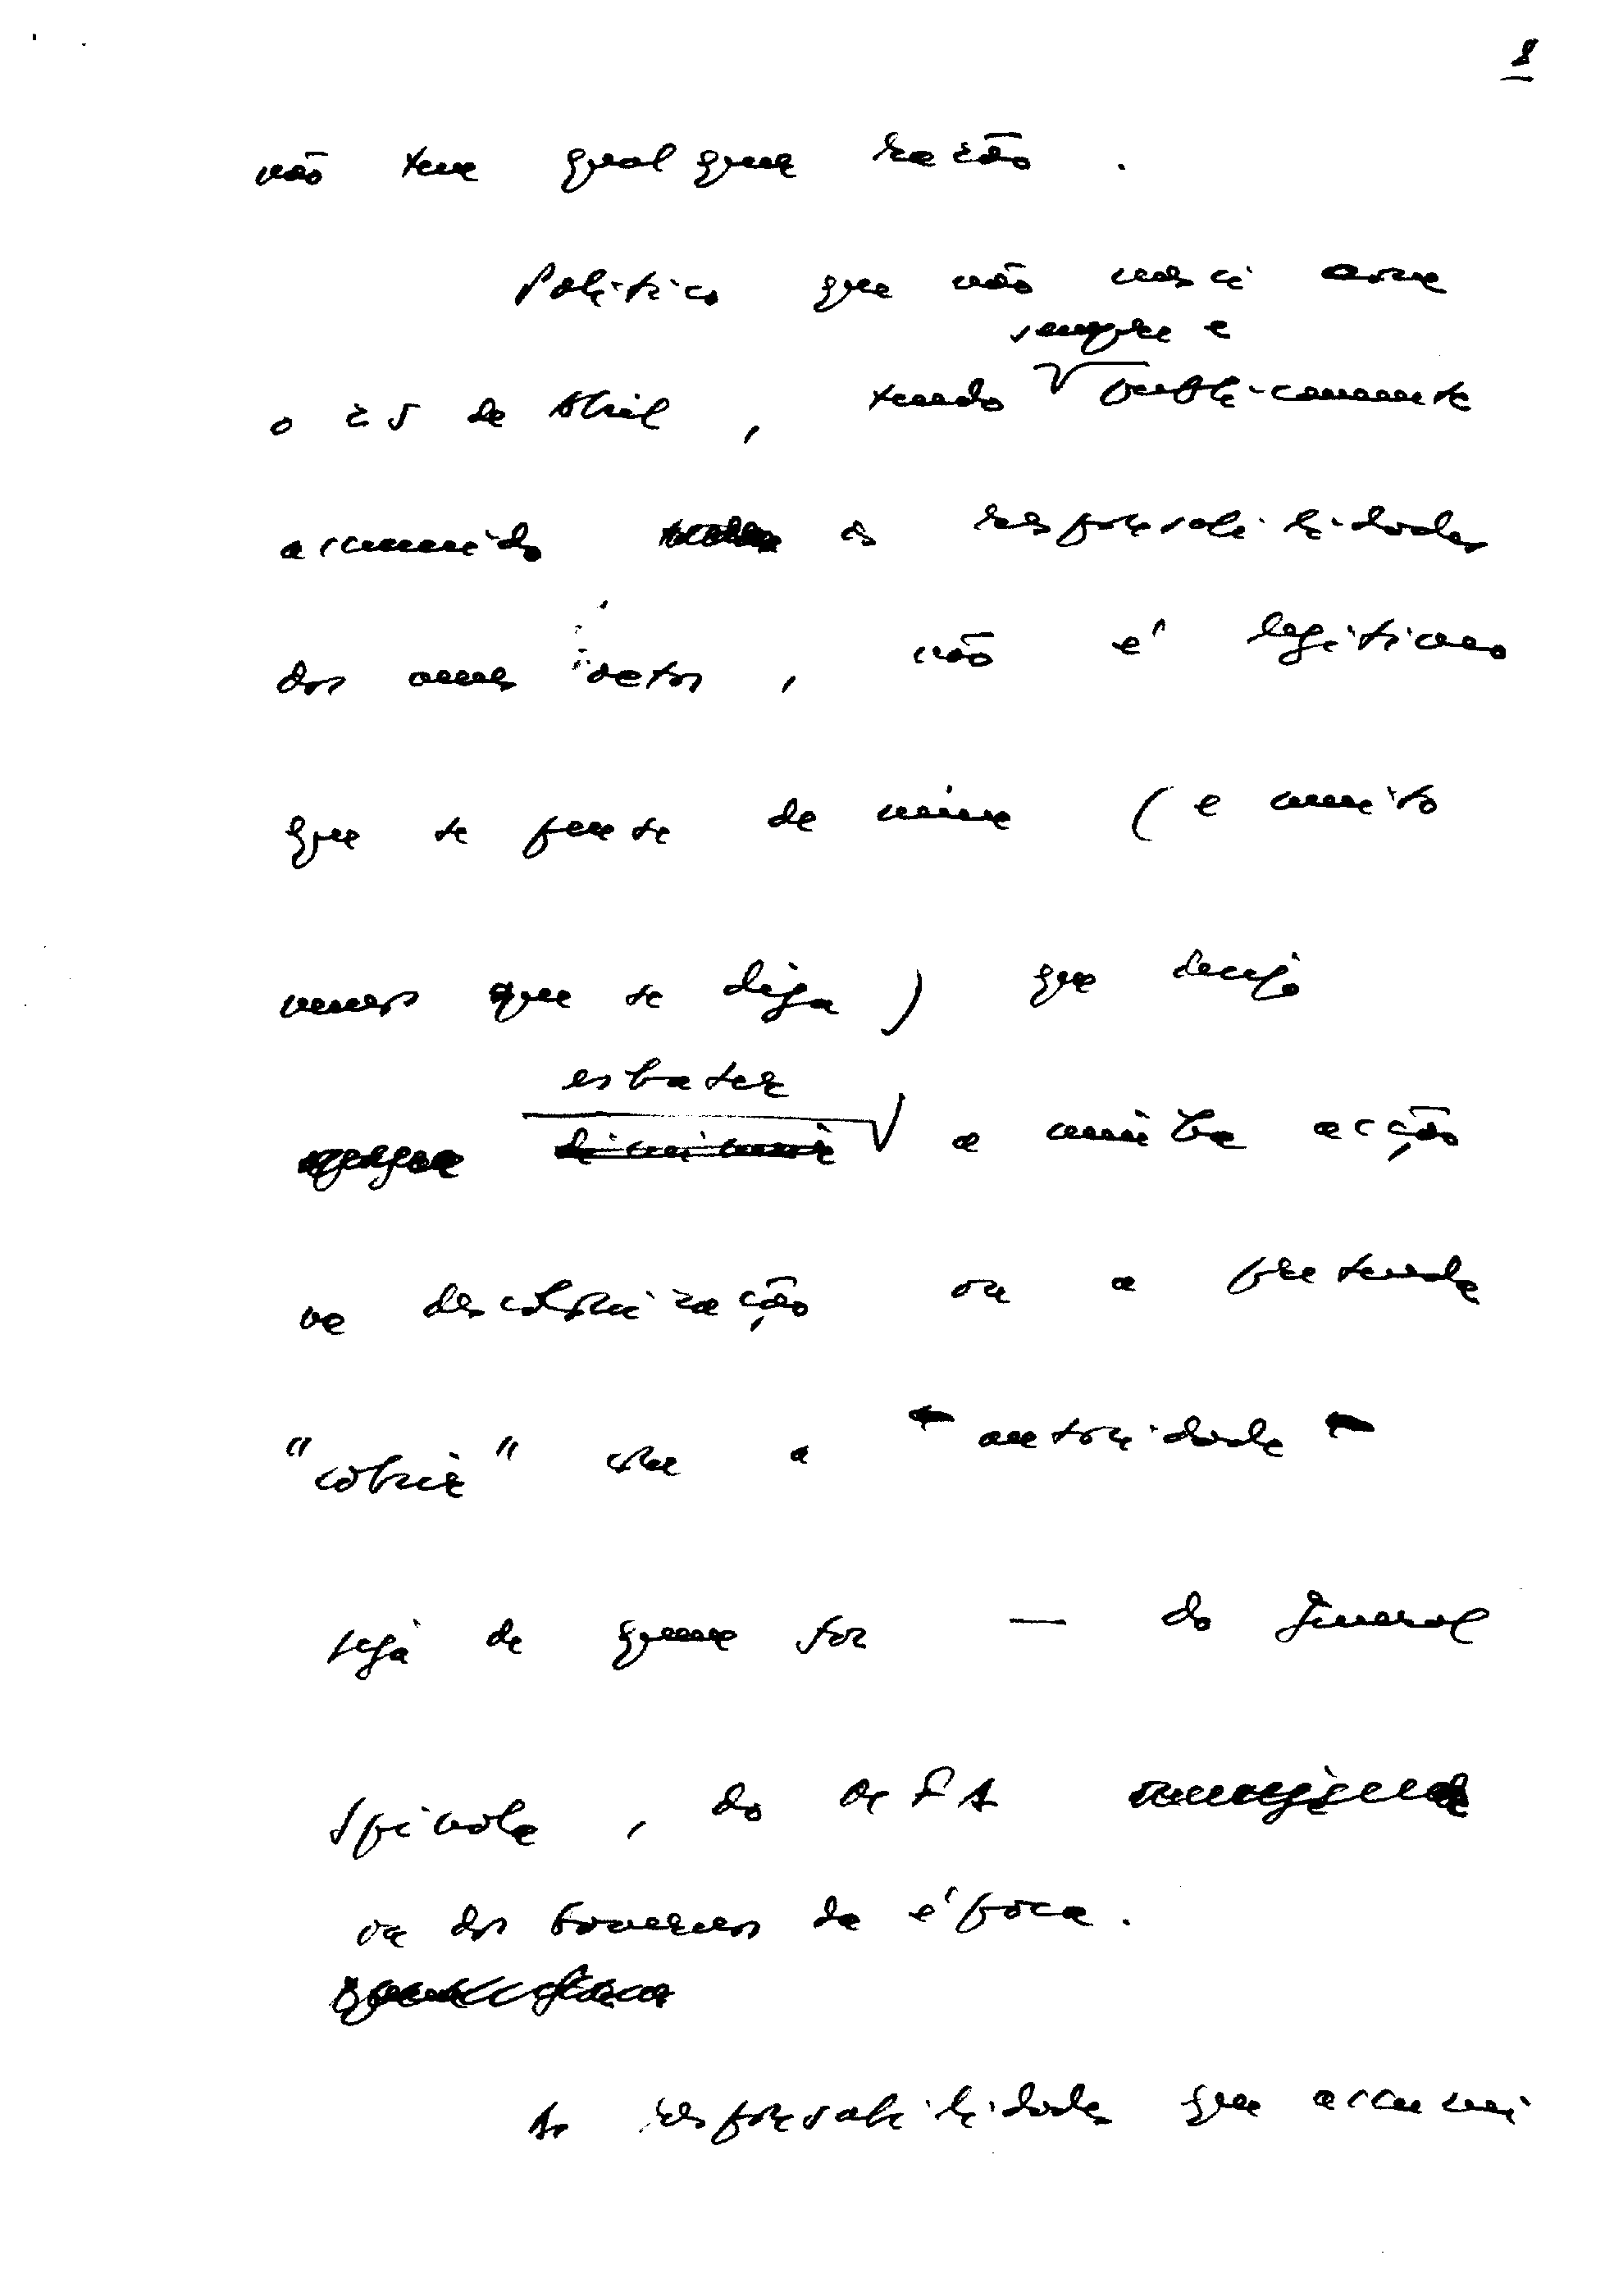 8
não tem qualquer razão .
Político que não nasci com
sempre e
o 25 de Abril , tendo publicamente
assumido as responsabilidades
dos meus actos , não é legítimo
que se pense de mim ( e muito
menos que se diga ) que desejo
esbater
diminuir a minha acção
na descolonização ou a pretenda
"cobrir" com a "autoridade"
seja de quem for — do General
Spínola , do MFA
ou dos Governos da época .
As responsabilidades que assumi